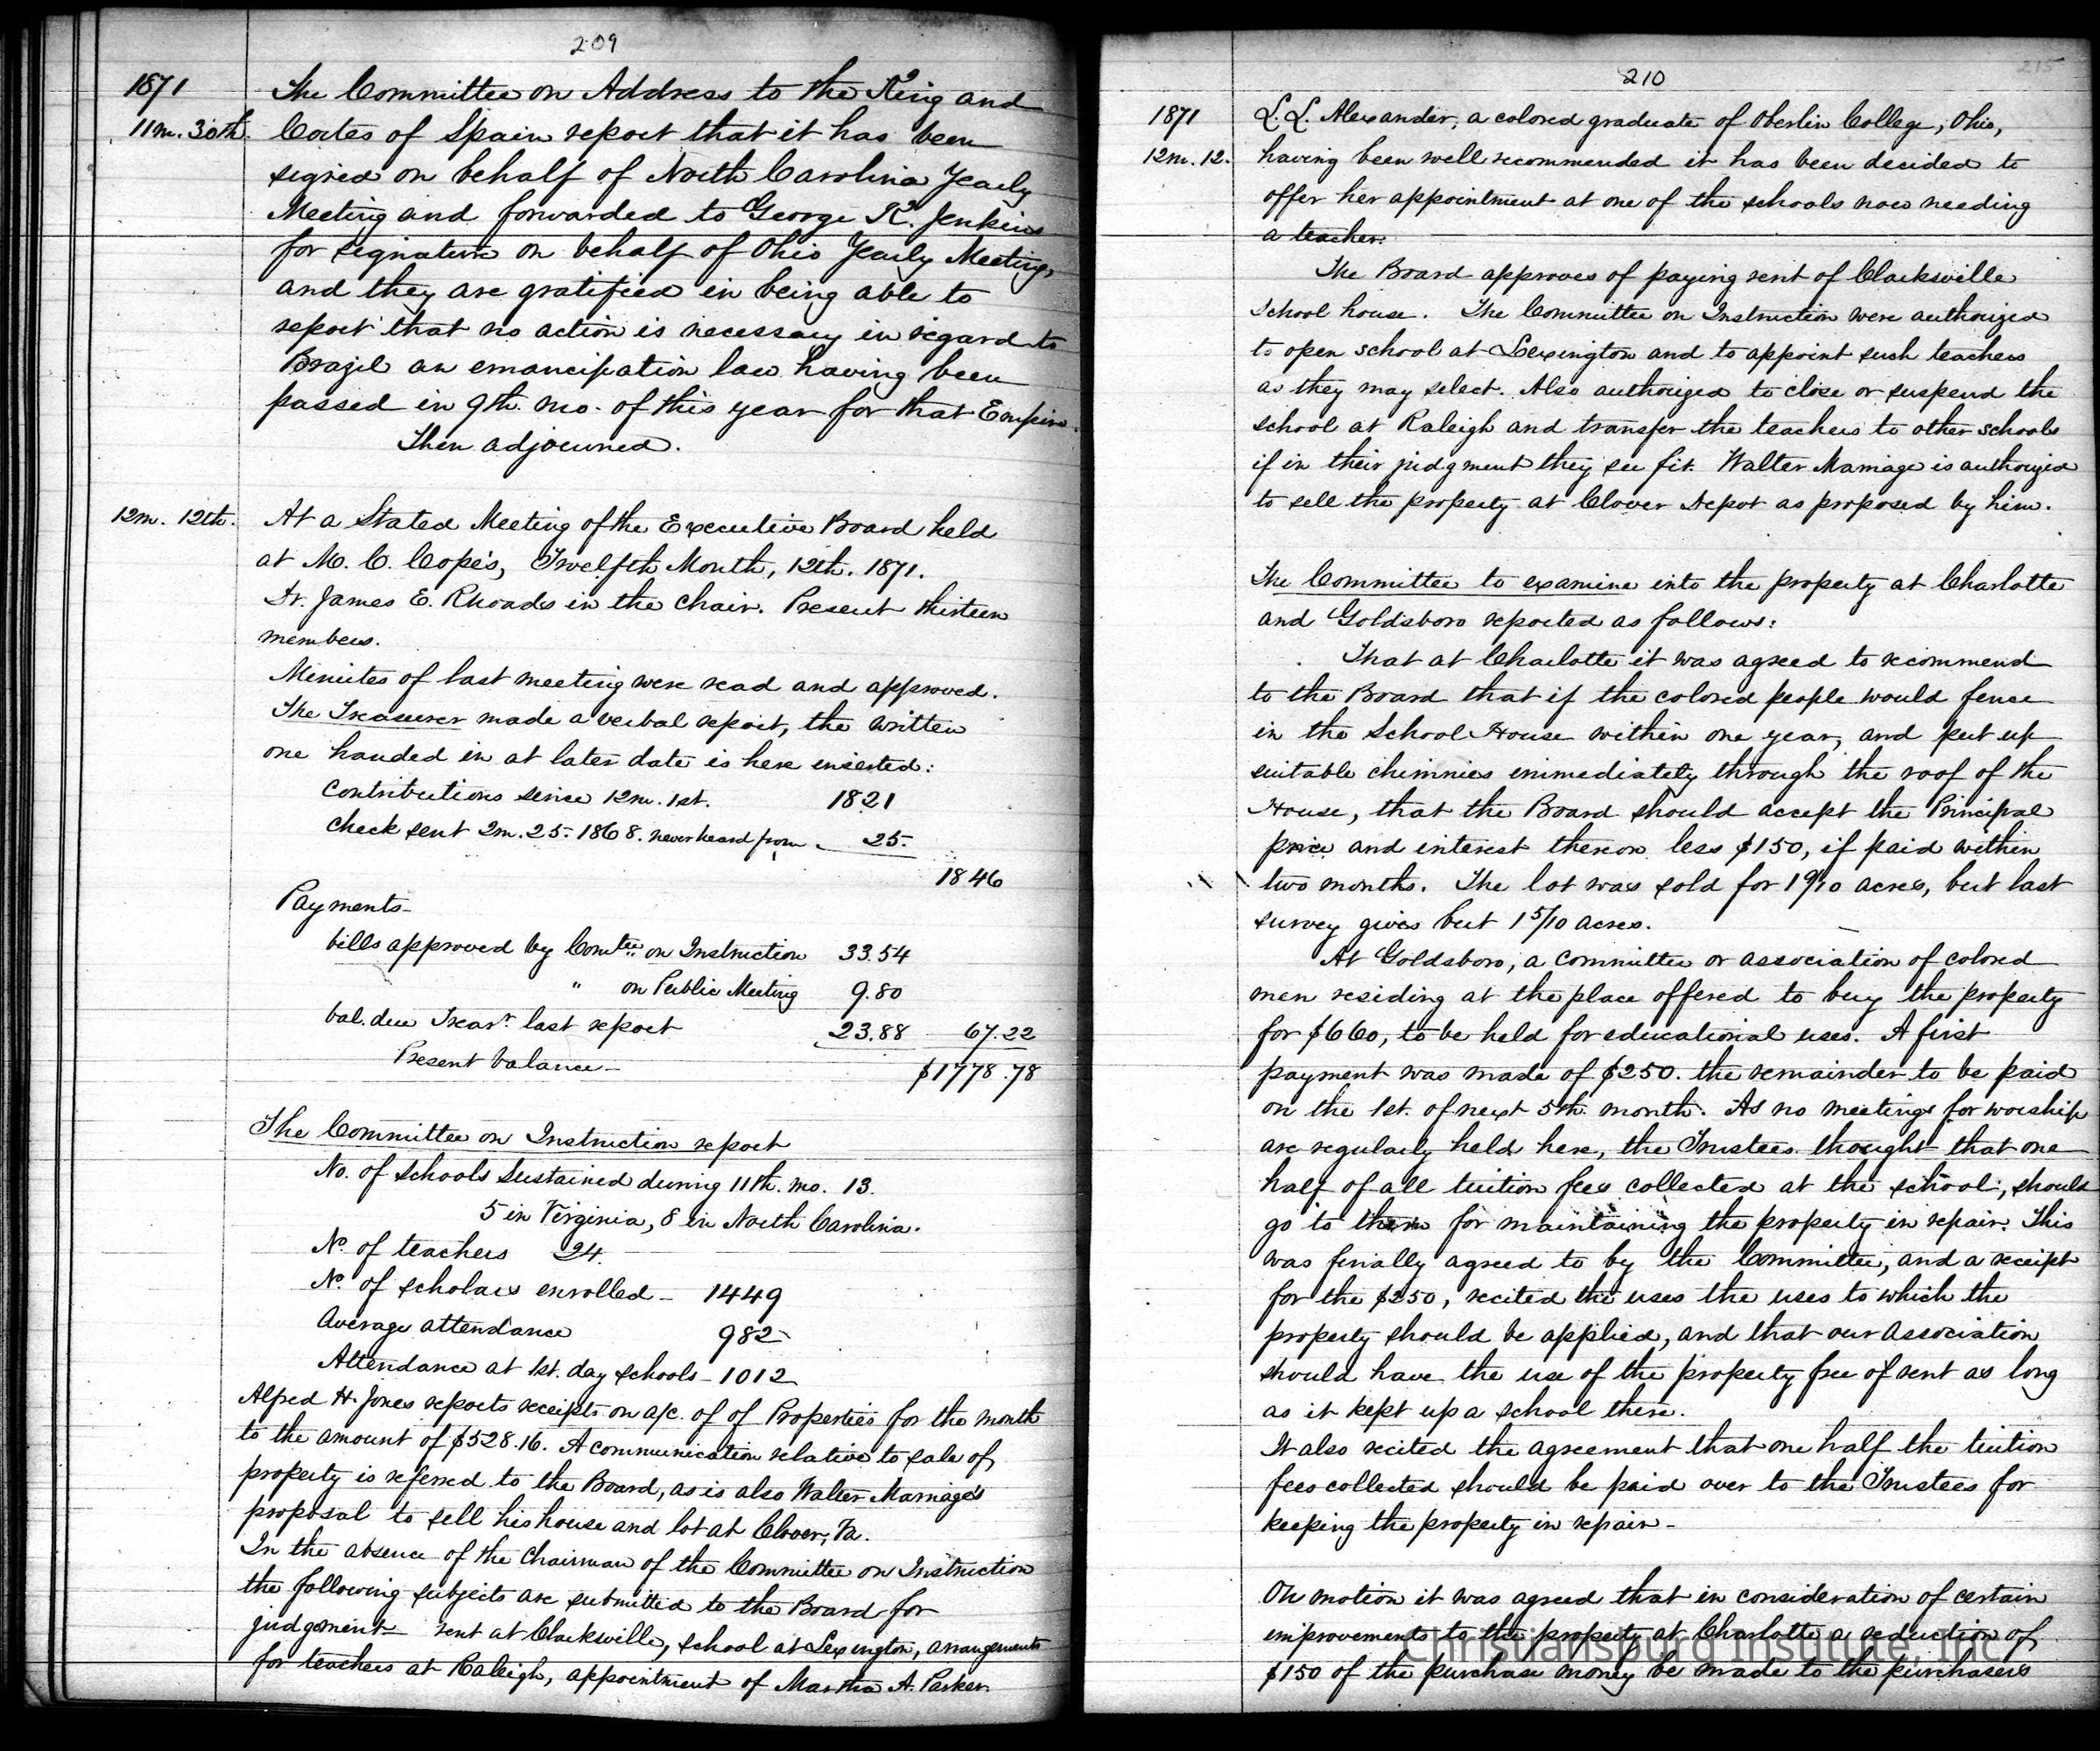 209
1871
The Committee on Address to the King and
11m. 30th. Cortes of Spain report that it has been
signed on behalf of North Carolina Yearly
Meeting and forwarded to George K. Jenkins
for signature on behalf of Ohio Yearly Meeting,
and they are gratified in being able to
report that no action is necessary in regard to
Brazil an emancipation law having been
passed in 9th. mo. of this year for that Empire.
Then adjourned.
12m. 12th. At a Stated Meeting of the Executive Board held
at M. C. Cope's, Twelfth Month, 12th. 1871.
Dr. James E. Rhoads in the chair. Present thirteen
members.
Minutes of last meeting were read and approved.
The Treasurer made a verbal report, the written
one handed in at later date is here inserted:
Contributions since 12m. 1st. 1821
Check sent 2m. 25. 1868. never heard from 25.
1846
Payments
bills approved by Comtee. on Instruction 33.54
" on Public Meeting 9.80
bal. due Treasr. last report 23.88 67.22
Present balance $1778.78
The Committee on Instruction report
No. of schools sustained during 11th. mo. 13.
5 in Virginia, 8 in North Carolina.
No. of teachers 24.
No. of scholars enrolled 1449
Average attendance 982
Attendance at 1st. day schools 1012
Alfred H. Jones reports receipts on a/c. of of Properties for the month
to the amount of $528.16. A communication relative to sale of
property is referred to the Board, as is also Walter Marriage's
proposal to sell his house and lot at Clover, Va.
In the absence of the Chairman of the Committee on Instruction
the following subjects are submitted to the Board for
judgment rent at Clarksville, school at Lexington, arrangements
for teachers at Raleigh, appointment of Martha A. Parker.
210
215
1871 L. L. Alexander, a colored graduate of Oberlin College, Ohio,
12m. 12. having been well recommended it has been decided to
offer her appointment at one of the schools now needing
a teacher.
The Board approves of paying rent of Clarksville
School house. The Committee on Instruction were authorized
to open school at Lexington and to appoint such teachers
as they may select. Also authorized to close or suspend the
school at Raleigh and transfer the teachers to other schools
if in their judgment they see fit. Walter Marriage is authorized
to sell the property at Clover Depot as proposed by him.
The Committee to examine into the property at Charlotte
and Goldsboro reported as follows:
That at Charlotte it was agreed to recommend
to the Board that if the colored people would fence
in the School House within one year, and put up
suitable chimnies immediately through the roof of the
House, that the Board should accept the Principal
price and interest thereon less $150, if paid within
two months. The lot was sold for 1 9/10 acres, but last
survey gives but 1 5/10 acres.
At Goldsboro, a committee or association of colored
men residing at the place offered to buy the property
for $660, to be held for educational uses. A first
payment was made of $250. the remainder to be paid
on the 1st. of next 5th. month. As no meetings for worship
are regularly held here, the Trustees thought that one
half of all tuition fees collected at the school, should
go to them for maintaining the property in repair. This
was finally agreed to by the Committee, and a receipt
for the $250, recited the uses the uses to which the
property should be applied, and that our Association
should have the use of the property free of rent as long
as it kept up a school there.
It also recited the agreement that one half the tuition
fees collected should be paid over to the Trustees for
keeping the property in repair -
On motion it was agreed that in consideration of certain
improvements to the property at Charlotte a reduction of
$150 of the purchase money be made to the purchasers
Christiansburg Institute, Inc.